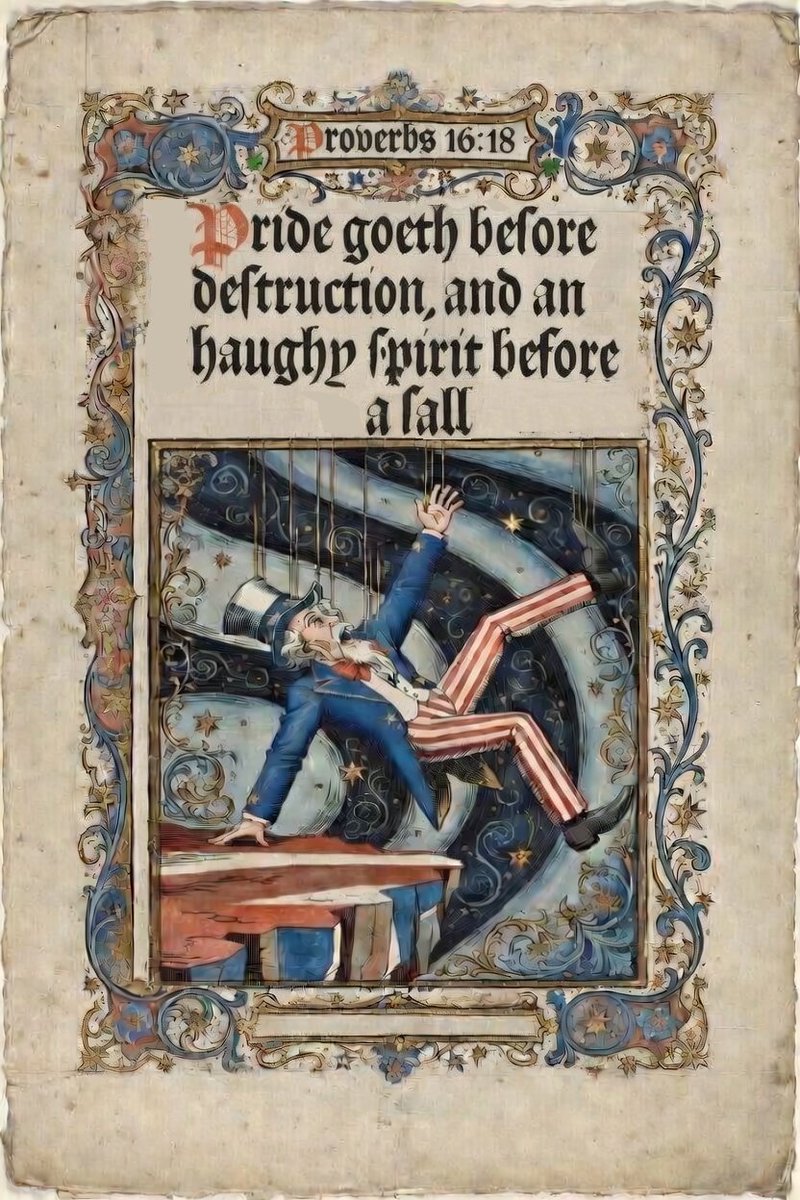 Proverbs 16:18
Pride goeth beſore
deſtruction, and an
haughy ſpirit before
a ſall